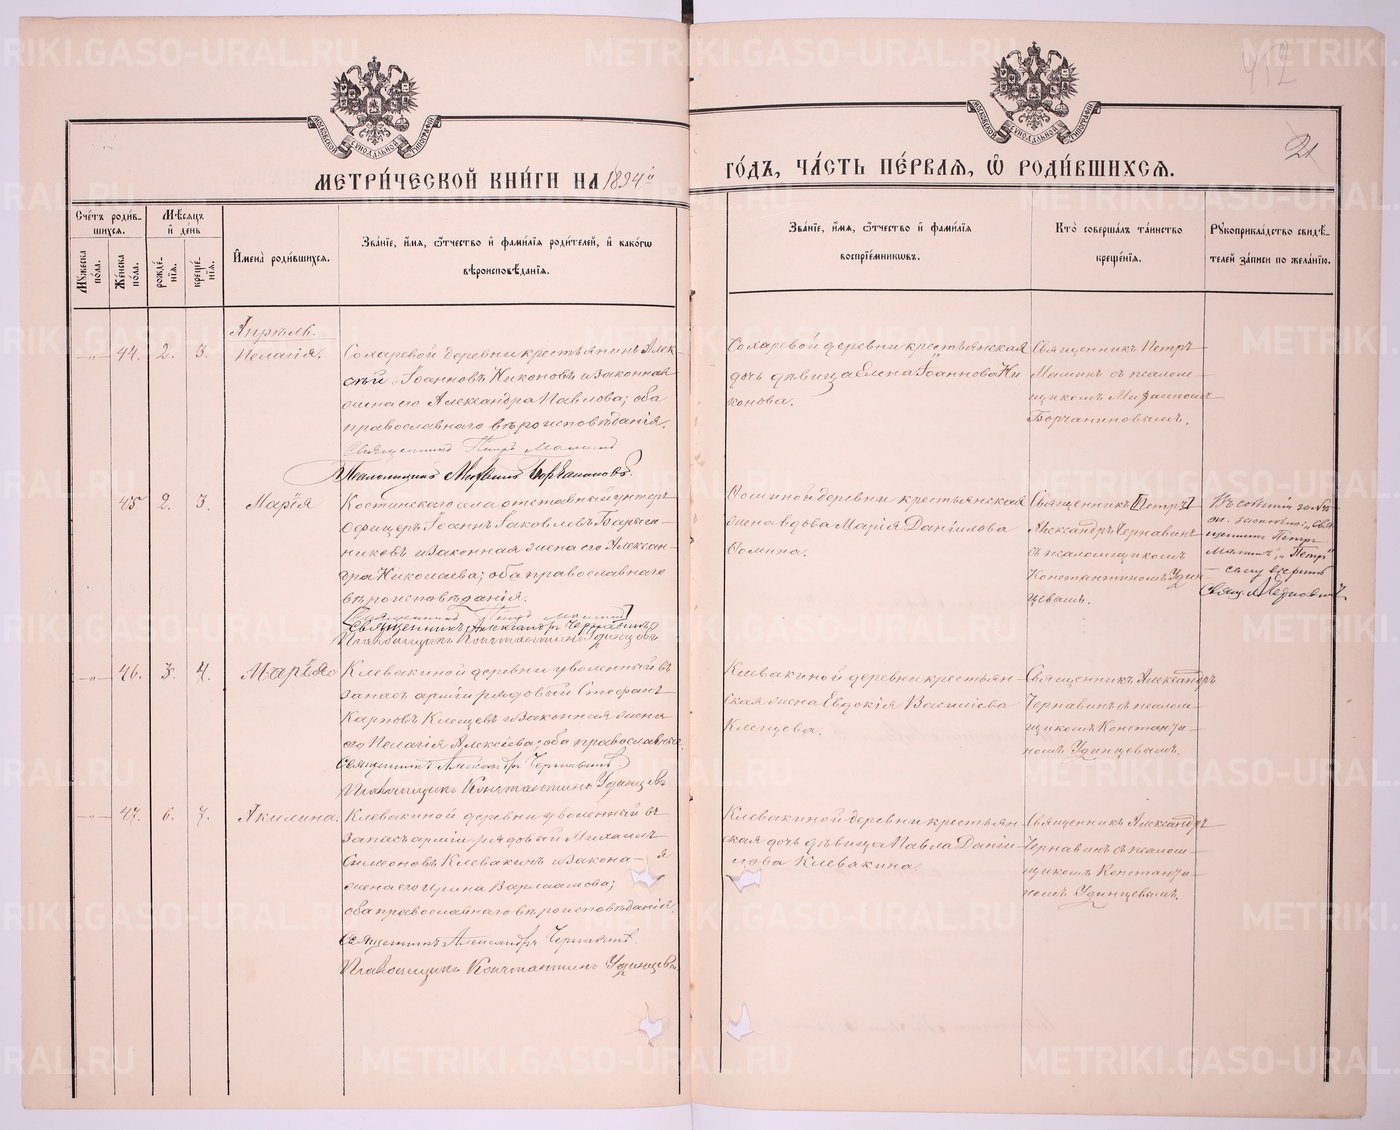 МЕТРИ́ЧЕСКОЙ КНИ́ГИ НА 1894й
ГО́ДЪ, ЧА́СТЬ ПЕ́РВАЯ, Ѡ РОДИ́ВШИХСЯ.
21
Сче́тъ роди́в-
шихся.
Мꙋжеска по́ла.
Же́нска по́ла.
Мѣ́сяцъ
и де́нь
рожде́-
нія.
креще́-
нія.
Имена̀ роди́вшихся.
Зва́ніе, и́мя, ѻ́тчество и фами́лія роди́телей, и како́гѡ
вѣроисповѣ́данія.
Зва́ніе, и́мя, ѻ́тчество и фами́лія
воспріе́мниковъ.
Кто̀ соверша́лъ та́инство
креще́нія.
Рꙋкоприкла́дство свидѣ́-
телей за́писи по жела́нію.
Апрѣль.
44. 2. 3. Пелагія.
Сохаревой деревни крестьянинъ Алек-
сѣй Іоанновъ Никоновъ и законная
жена его Александра Павлова; оба
православнаго вѣроисповѣданія.
Священникъ Петръ Маминъ
Псаломщикъ Михаилъ Борчаниновъ
Сохаревой деревни крестьянская
дочь дѣвица Елена Іоаннова Ни
конова.
Священникъ Петръ
Маминъ съ псалом-
щикомъ Михаиломъ
Борчаниновымъ.
45 2. 3. Марія
Костинскаго села отставный унтеръ
Офицеръ Іоаннъ Іаковлевъ Барыш-
никовъ и законная жена его Алексан-
дра Николаева; оба православнаго
вѣроисповѣданія.
Священникъ Петръ Маминъ
Священникъ Александръ Чернавинъ
Псаломщикъ Константинъ Удинцевъ
Ѳоминой деревни крестьянская
жена вдова Марія Даніилова
Ѳомина.
Священникъ [Петръ]
Александръ Чернавинъ
съ псаломщикомъ
Константиномъ Удин
цевымъ.
46. 3. 4. Марія
Клевакиной деревни уволенный въ
запасъ арміи рядовый Стефанъ
Карповъ Клещевъ и законная жена
его Пелагія Алексіева; оба православные
Священникъ Александръ Чернавинъ
Псаломщикъ Константинъ Удинцевъ
Клевакиной деревни крестьян-
ская жена Евдокія Василіева
Клещева.
Священникъ Александръ
Чернавинъ съ псалом-
щикомъ Константи-
номъ Удинцевымъ.
47. 6. 7. Акилина.
Клевакиной деревни уволенный въ
запасъ арміи рядовый Михаилъ
Симеоновъ Клевакинъ и законна-я
жена его Ирина Варлаамова;
оба православнаго вѣроисповѣданія.
Священникъ Александръ Чернавинъ.
Псаломщикъ Константинъ Удинцевъ
Клевакиной деревни крестьян-
ская дочь дѣвица Павла Даніи-
лова Клевакина.
Священникъ Александръ
Чернавинъ съ псалом-
щикомъ Константи-
номъ Удинцевымъ.